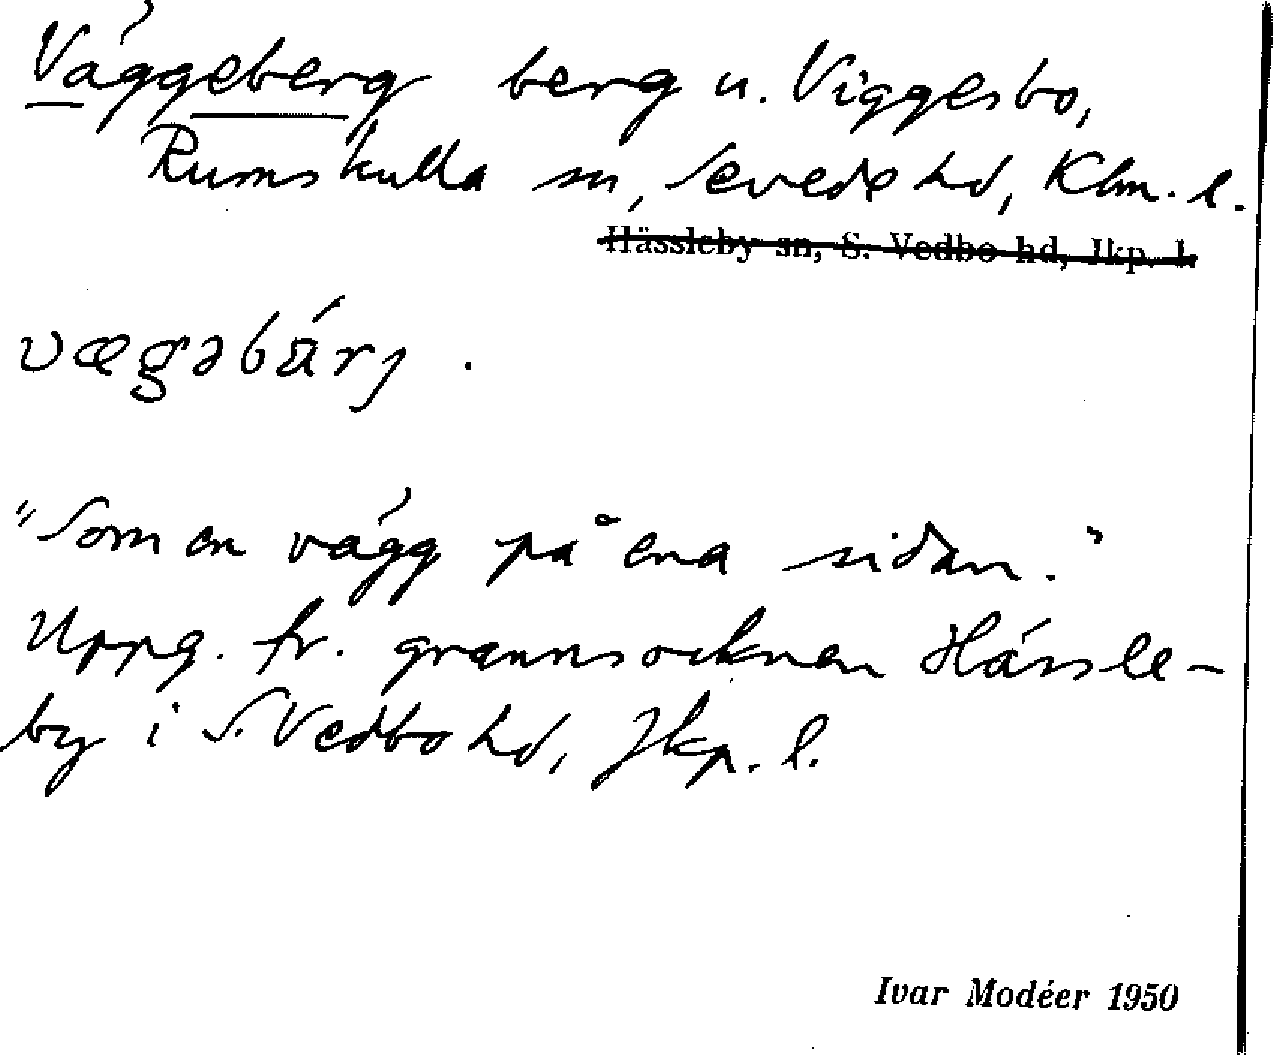 Väggeberg berg u. Viggesbo,
Rumskulla sn, Sevede hd, Klm. l.
Hässleby sn, S. Vedbo hd, Jkp. l.
vægəbárj.
"Som en vägg på ena sidan."
Uppg. fr. grannsocknen Hässle-
by i S. Vedbo hd, Jkp. l.
Ivar Modéer 1950